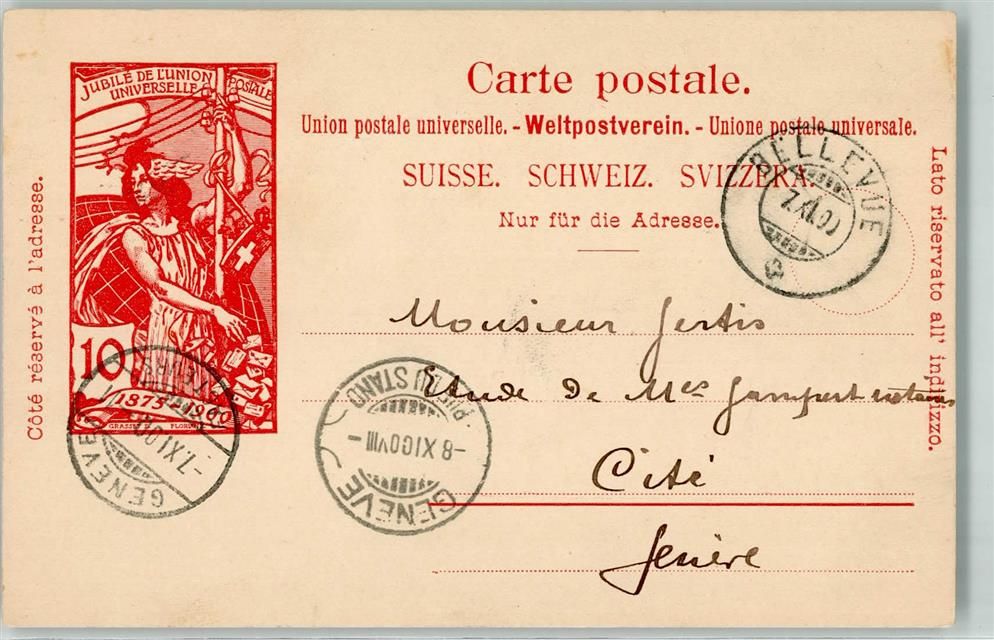 Carte postale.
Union postale universelle. - Weltpostverein. - Unione postale universale.
SUISSE. SCHWEIZ. SVIZZERA.
Nur für die Adresse.
Côté réservé à l'adresse.
Lato riservato all' indirizzo.
JUBILÉ DE L'UNION POSTALE
UNIVERSELLE
10
1875-1900
GRASSET FLORIAN
BELLEVUE
7.XI.00
Monsieur
Etude de Mes notaires
Cité
Genève
GENÈVE
-7.XI.00
GENÈVE
-8.XI.00.VIII-